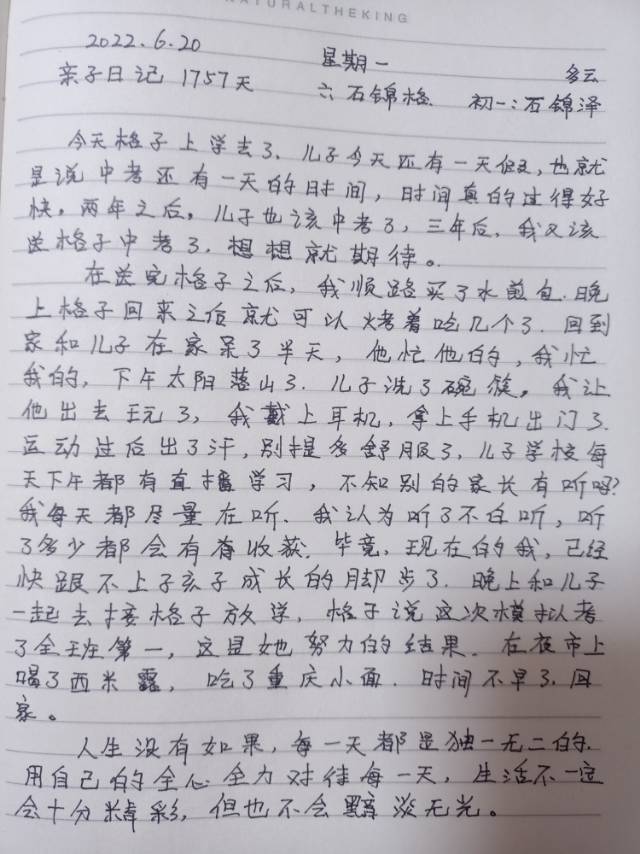 NATURALTHEKING
2022.6.20 星期一 多云
亲子日记 1757天 六石锦格. 初一:石锦泽
今天格子上学去了、儿子今天还有一天假,也就
是说中考还有一天的时间,时间真的过得好
快。两年之后,儿子也该中考了,三年后、我又该
送格子中考了.想想就期待。
在送完格子之后,我顺路买了水煎包.晚
上格子回来之后就可以烤着吃几个了.回到
家和儿子在家呆了半天,他忙他的,我忙
我的,下午太阳落山了.儿子洗了碗筷,我让
他出去玩了,我戴上耳机,拿上手机出门了.
运动过后出了汗,别提多舒服了,儿子学校每
天下午都有直播学习,不知别的家长有听吗?
我每天都尽量在听.我认为听了不白听,听
了多少都会有收获.毕竟,现在的我,已经
快跟不上子孩子成长的脚步了.晚上和儿子
一起去接格子放学,格子说这次模拟考
了全班第一,这是她努力的结果.在夜市上
喝了西米露,吃了重庆小面.时间不早了,回
家。
人生没有如果,每一天都是独一无二的.
用自己的全心全力对待每一天,生活不一定
会十分精彩,但也不会黯淡无光。